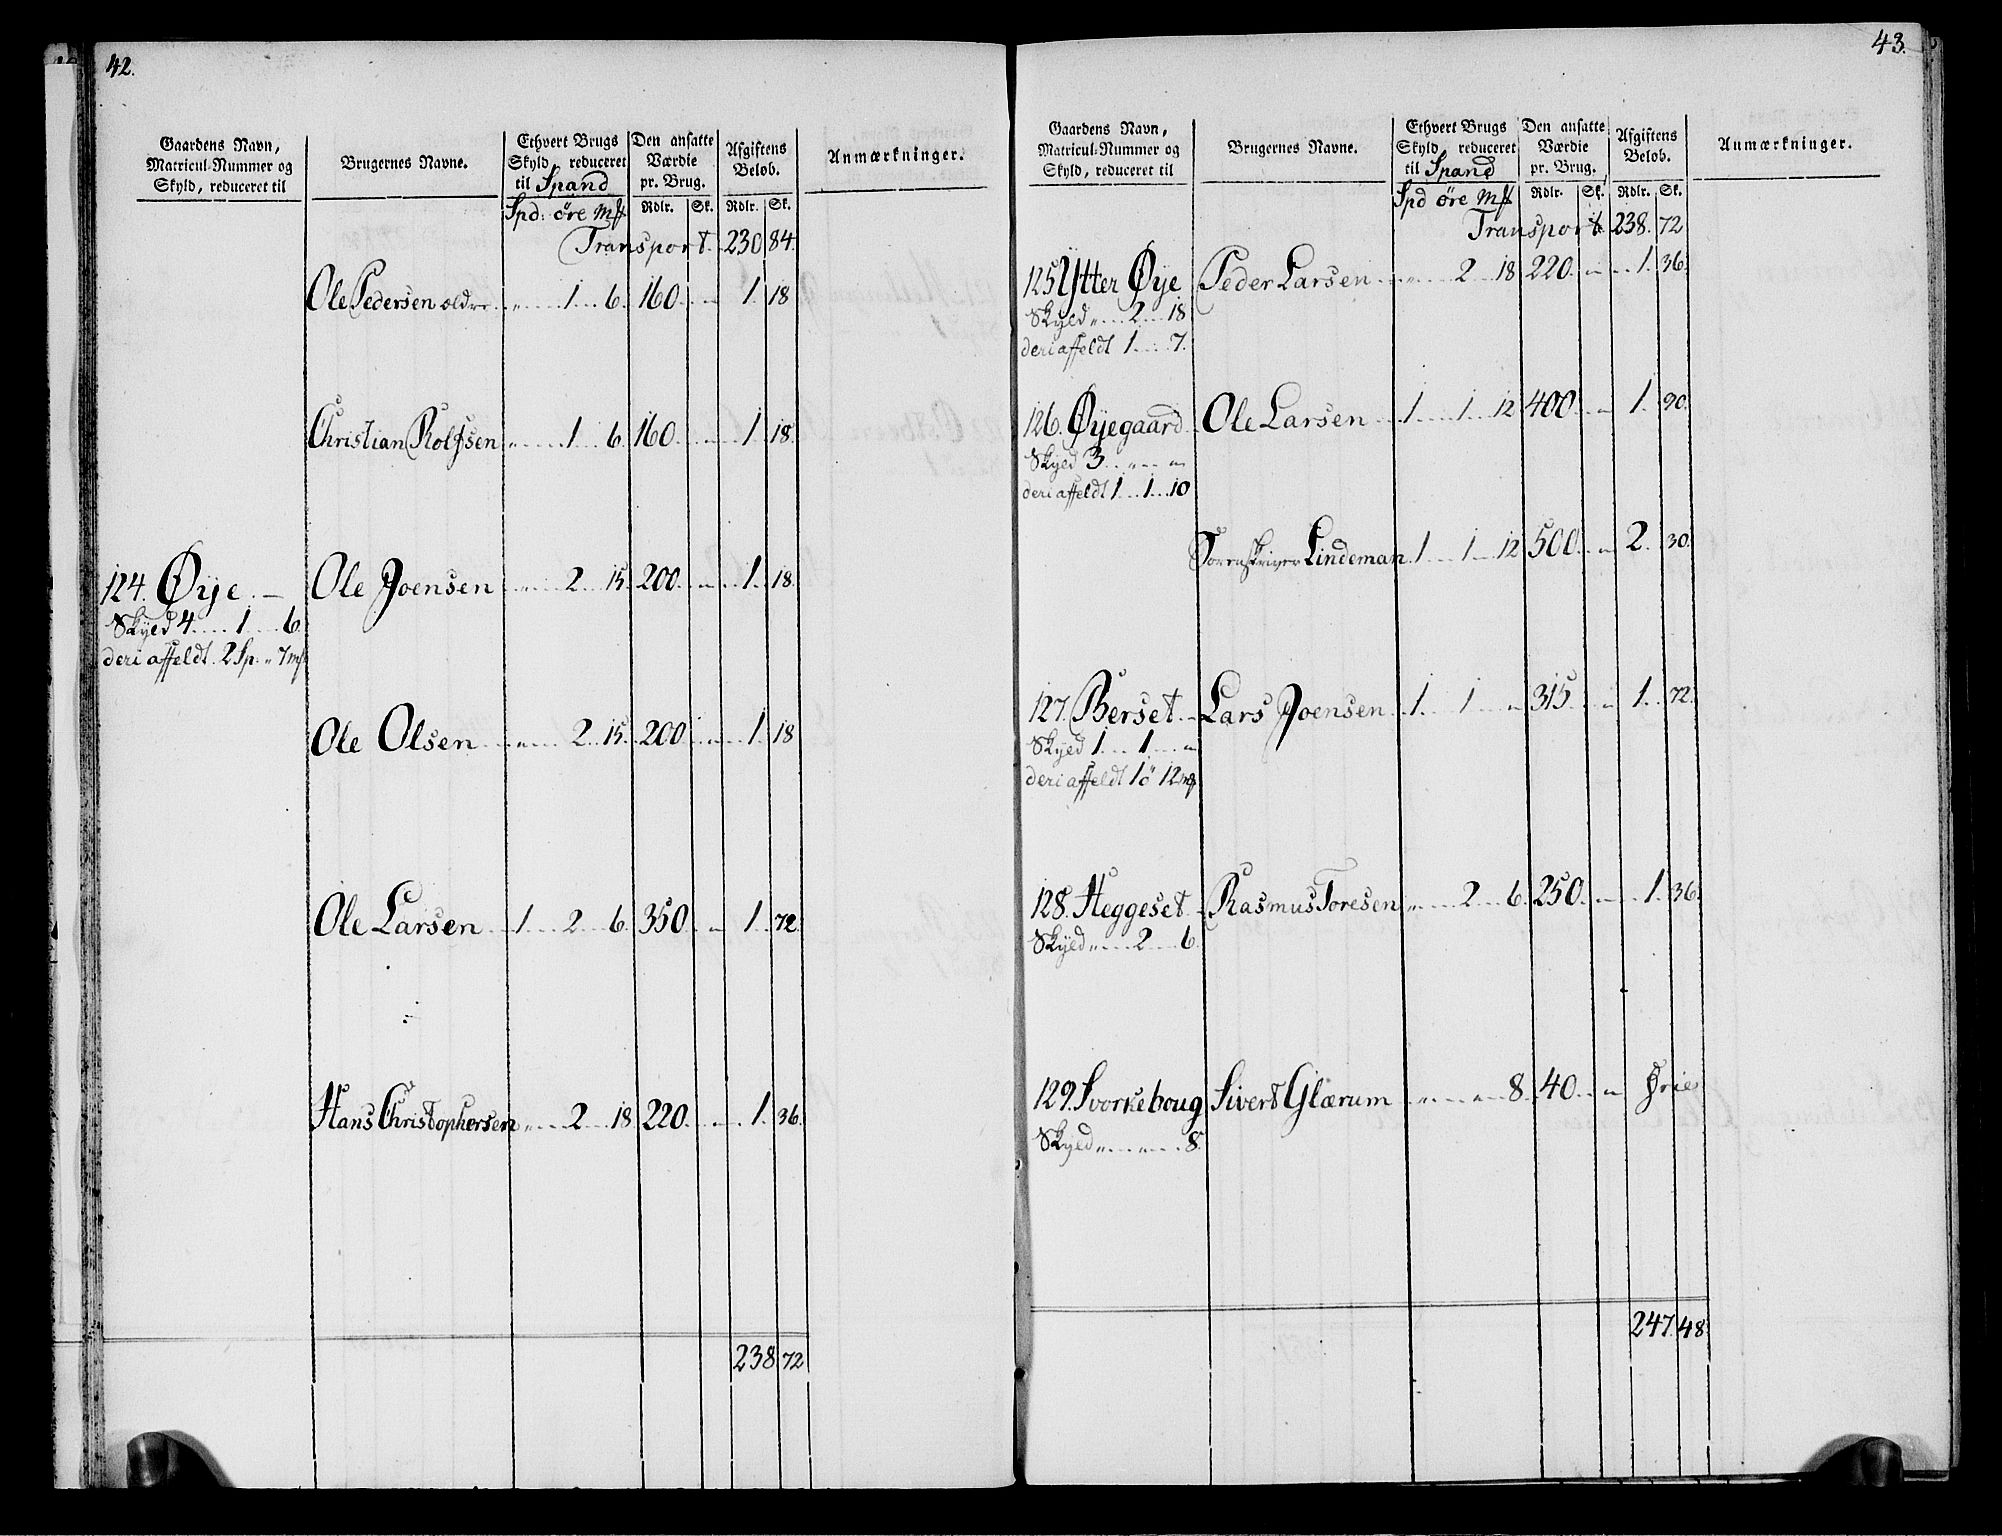 42.
Gaardens Navn, Matricul-Nummer og Skyld, reduceret til
Brugernes Navne.
Ethvert Brugs Skyld, reduceret til Spand
Den ansatte Værdie pr. Brug.
Afgiftens Beløb.
Anmærkninger.
Spd: öre mƒ Rdlr. Sk. Rdlr. Sk.
Transport. 230 84.
Ole Pedersen 1 6. 160. 1. 18
Christian Rolfsen 1 6. 160. 1. 18.
124. Øye. Ole Joensen 2 15. 200. 1. 18.
Skyld 4 1 6.
deri affeldt. 2 Sp. „ 7 mƒ
Ole Olsen 2 15. 200. 1. 18
Ole Larsen 1 2 6. 350. 1. 72.
Hans Christophersen 2 18. 220. 1. 36.
238. 72
43.
Gaardens Navn, Matricul-Nummer og Skyld, reduceret til
Brugernes Navne.
Ethvert Brugs Skyld, reduceret til Spand
Den ansatte Værdie pr. Brug.
Afgiftens Beløb.
Anmærkninger.
Spd öre mƒ Rdlr. Sk. Rdlr. Sk.
Transport 238. 72
125. Ytter Øye Peder Larsen 2 18 220. 1. 36.
Skyld „ 2 18
deri affeldt 1 7.
126. Øyegaard Ole Larsen 1 1 12 400 1. 90.
Skyld 3 „ „
deri affeldt 1 1 10
Sorenskriver Lindeman 1 1 12 500. 2. 30.
127. Berset Lars Joensen 1 1 „ 315. 1. 72.
Skyld 1 1 „
deri affeldt 1 ö 12 mƒ
128. Heggeset Rasmus Toresen 2 6. 250. 1. 36.
Skyld „ 2 6.
129. Svorkeboug Sivert Glærum „ „ 8 40. Frie
Skyld „ „ 8.
247. 48.